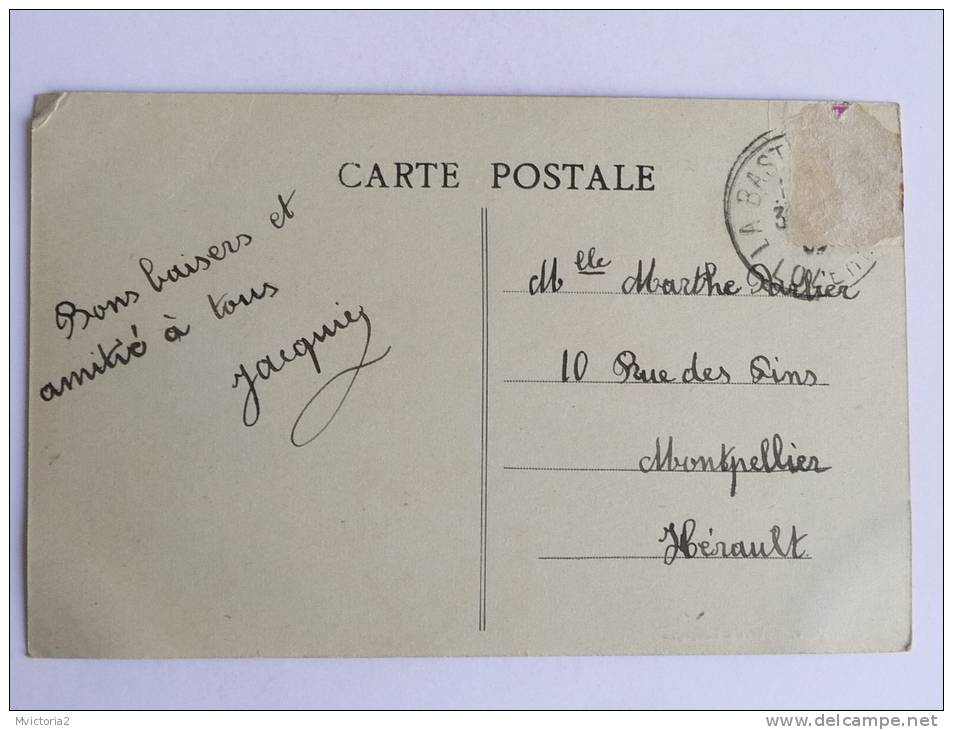 CARTE POSTALE
Bons baisers et
amitié à tous
Jacquie
LA BAST
LOZÈRE
M lle Marthe
10 Rue des Pins
Montpellier
Hérault
Mvictoria2
www.delcampe.net